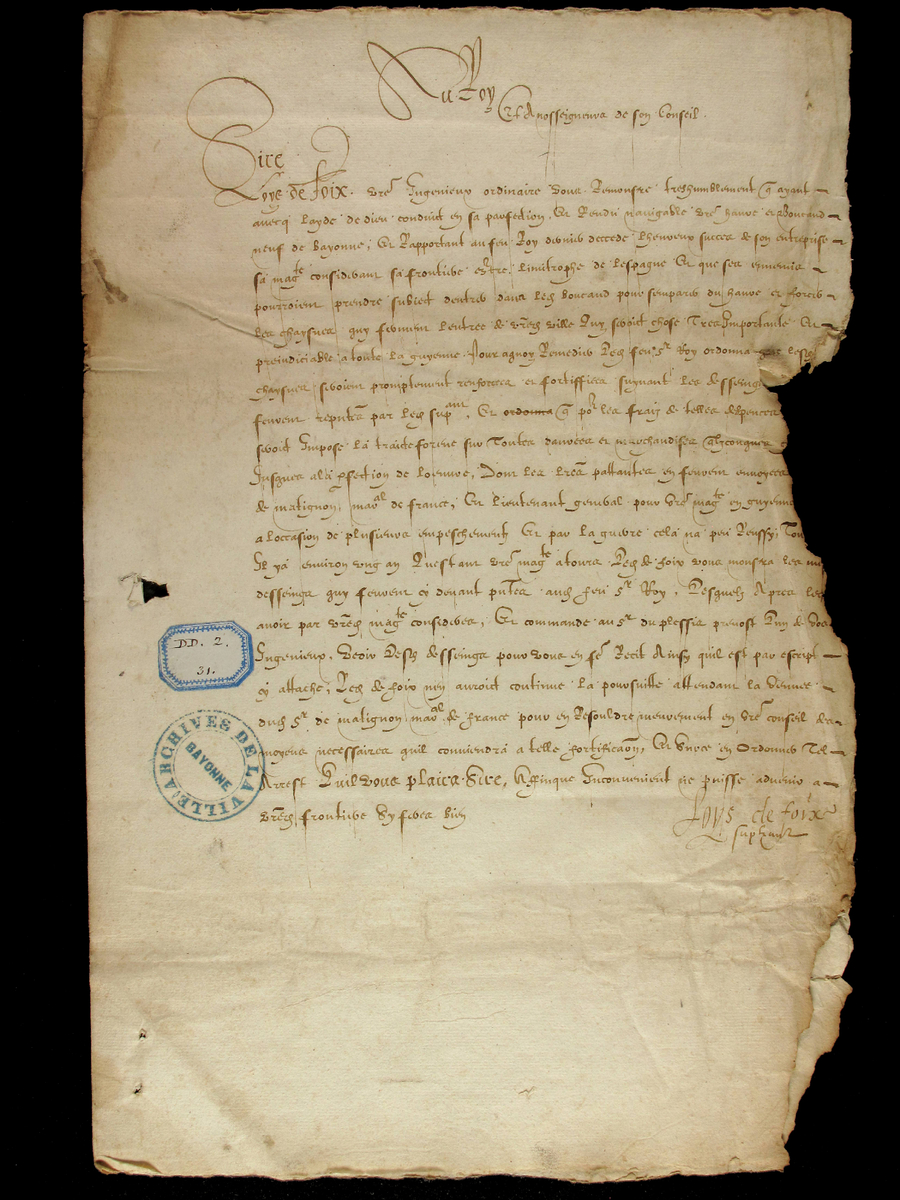 Au Roy
Et A nosseigneurs de son Conseil.
Sire
Loys de foix. vre Ingenieux ordinaire vous Remonstre treshumblement q ayant
avecq layde de dieu conduict en sa parfection, Et Rendu navigable vre havre et Boucaud
neuf de bayonne, Et Rapportant au feu Roy decede lheureux succes de son entreprise
sa magte considerant sa frontiere estre limitrophe de lespagne Et que ses ennemis
pourroient prendre subiect dentrer dans led boucaud pour semparer du havre et forcer
les chaysnes, quy ferment lentree de vred ville Quy seroit chose Tres Importante Et
preiudiciable a toute la guyenne. Pour a quoy Remedier led feu Sr Roy ordonna
chaysnes seroient promptement renforcees et fortiffiees suyvant les desseings
feurent reputes par led supant, Et ordonna q por les fraiz de telles despences
seroit Impose la traicte foraine sur Toutes danrees et marchandises quelzconques
Jusques a la pfection de loeuvre, Dont les lres pattantes en feurent envoyees
de matignon maral de france, Et lieutenant general pour vre magte en guyenne
a loccasion de plusieurs empeschement Et par la guerre cela na peu Reussir, Tou
Il ya environ ung an Questant vre magte a tours led de foix vous monstra les
desseings quy feurent cy devant pntes aud feu Sr Roy, Lesquelz Apres les
avoir par vred magte consideres, Et commande au Sr du plessis prevost Lun de vos
Ingenieux, veoir lesd desseings pour vous en fe Recit Ainsy quil est par escript
cy attache, Led de foix nen auroit continue la poursuitte attendant la venue
dud Sr de matignon maral de france pour en Resouldre meurement en vre conseil des
moyens necessaires quil conviendra a telle fortificaon, Et sur ce en Ordonner Tel
Arrest Quil vous plaira Sire, Affinque Inconvenient ne puisse advenir a
vred frontiere Sy feres bien
Loys de foix
supliant
DD. 2.
31.
ARCHIVES DE LA VILLE
BAYONNE